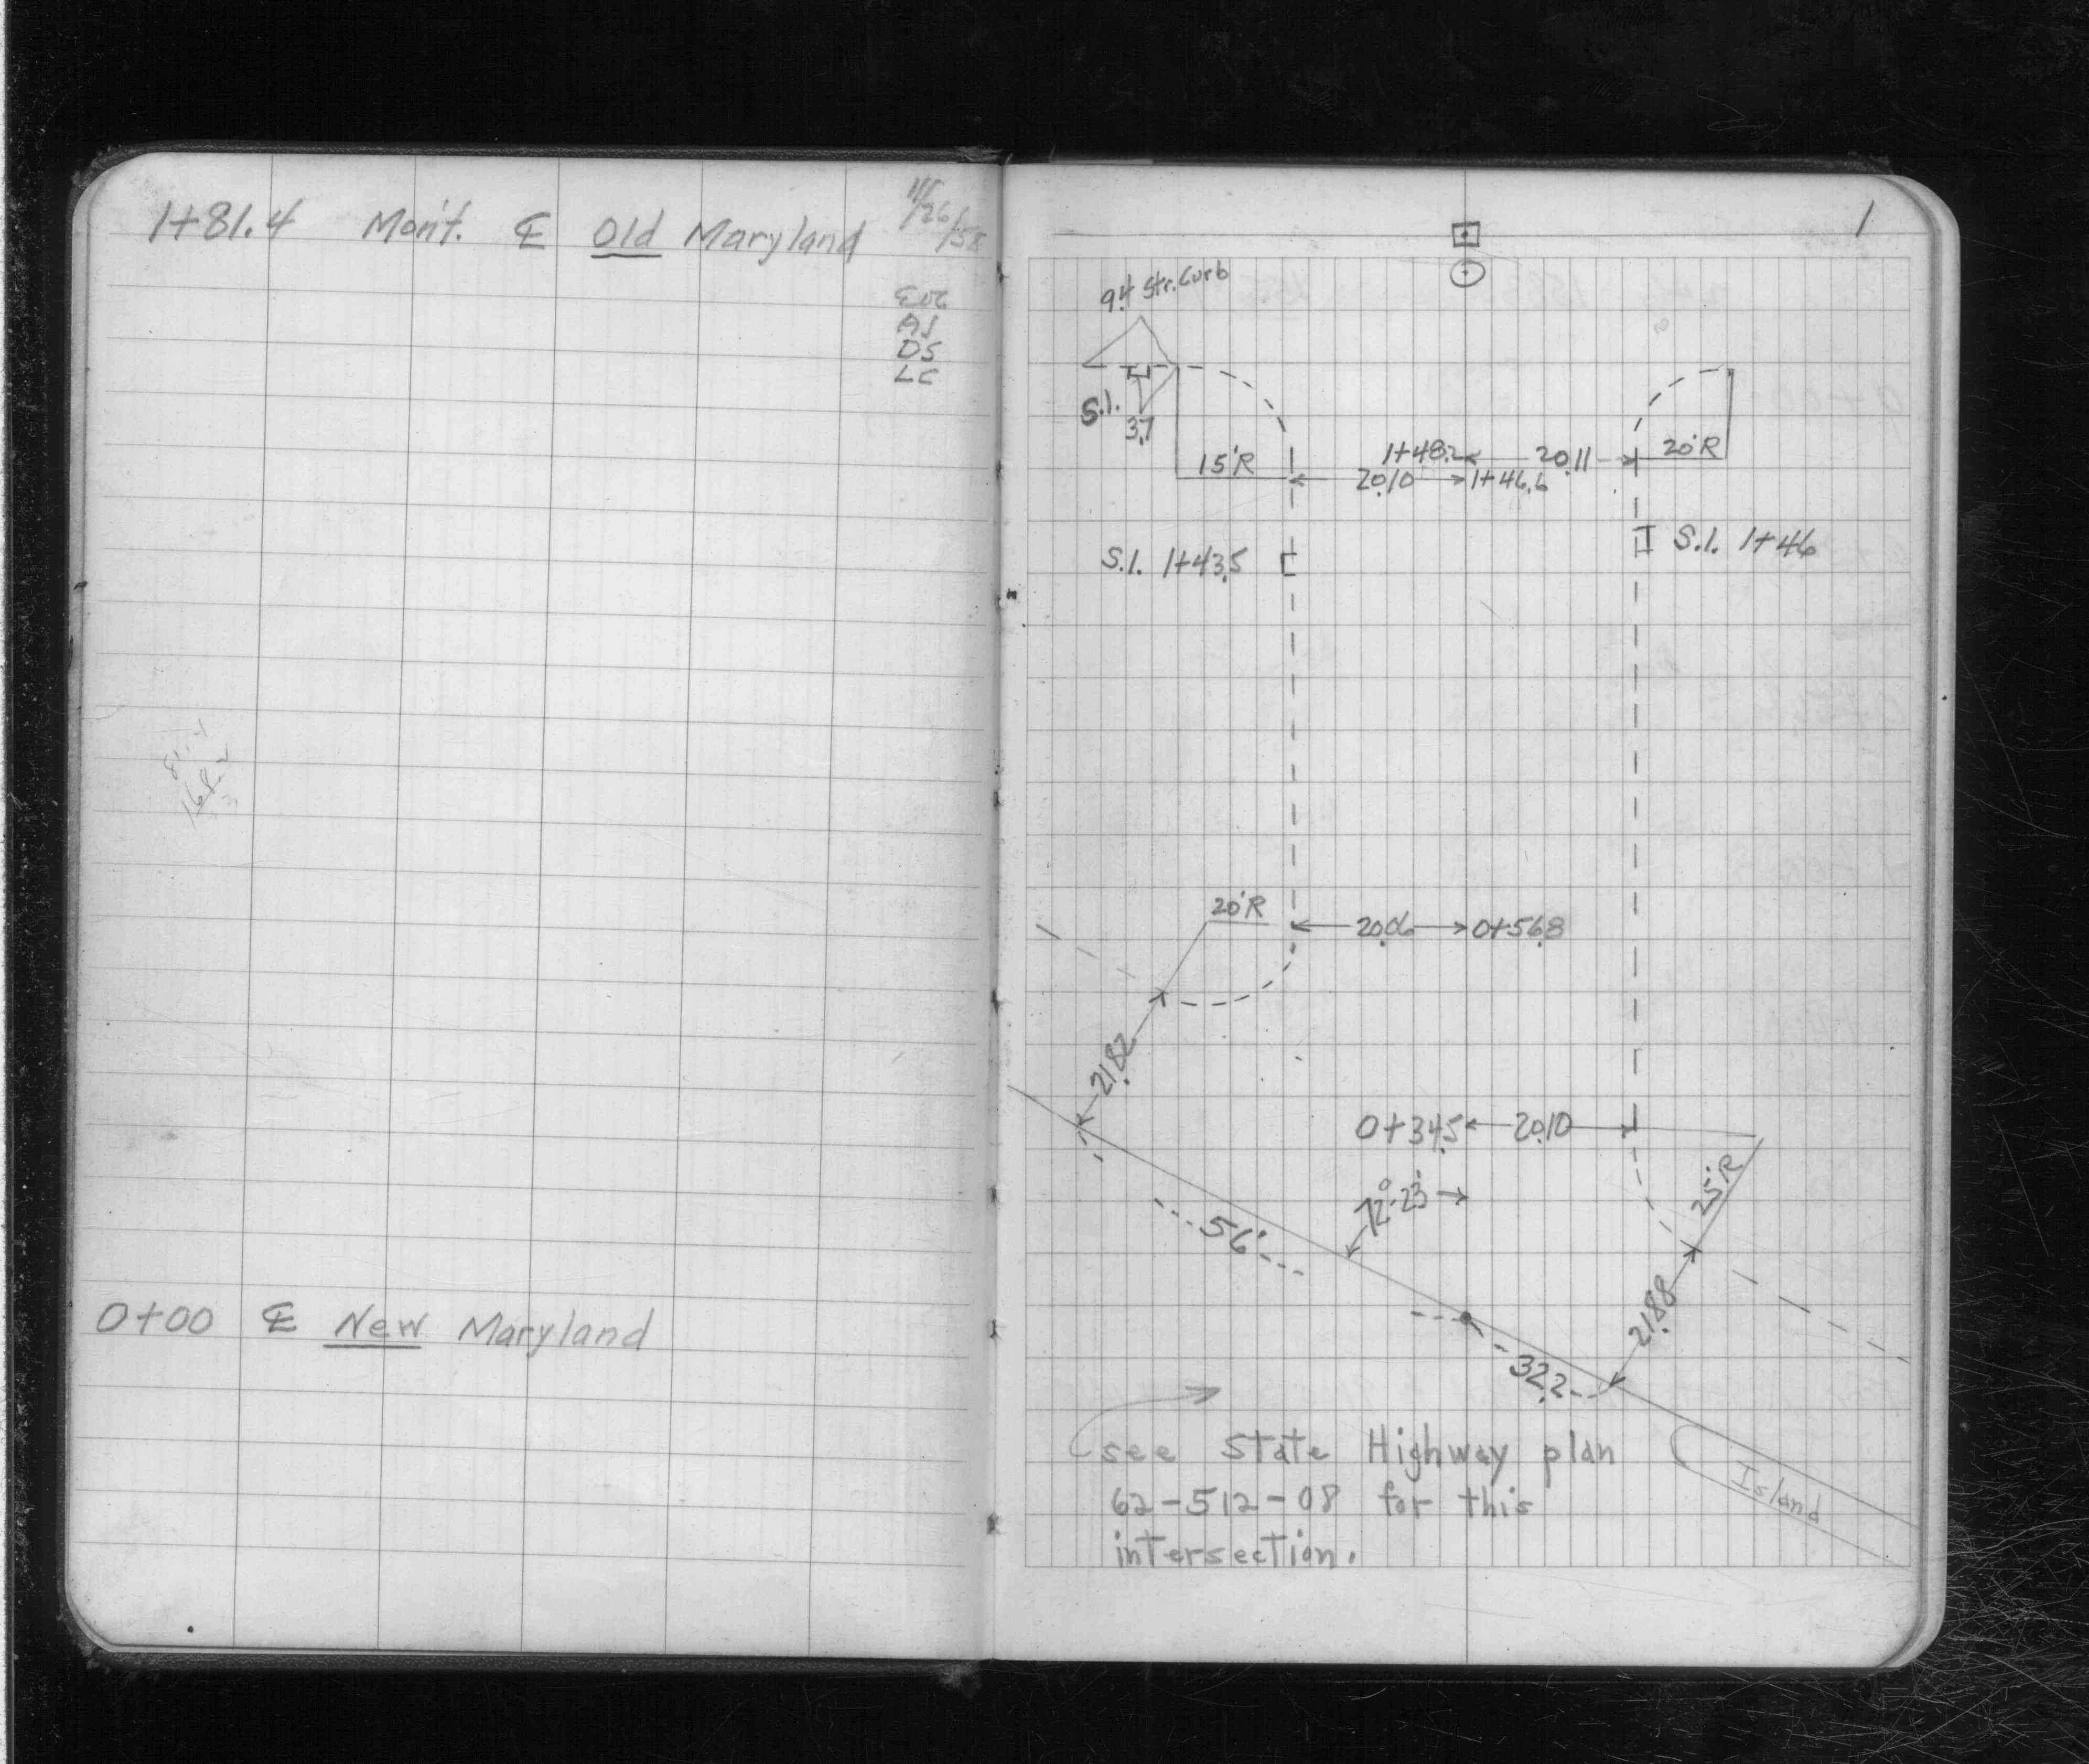 1+81.4 Mon't. ℄ Old Maryland
11/26/58
AJ
DS
LC
0+00 ℄ New Maryland
1
9.4 Str. Curb
S.I.
3.7
15'R
1+48.2
20.11
20'R
20.10
1+46.6
S.I. 1+43.5
S.I. 1+46
20'R
20.06
0+56.8
21.82
0+34.5
20.10
72°-23'
25'R
56.
21.88
32.2
see State Highway plan
62-512-08 for this
intersection.
Island